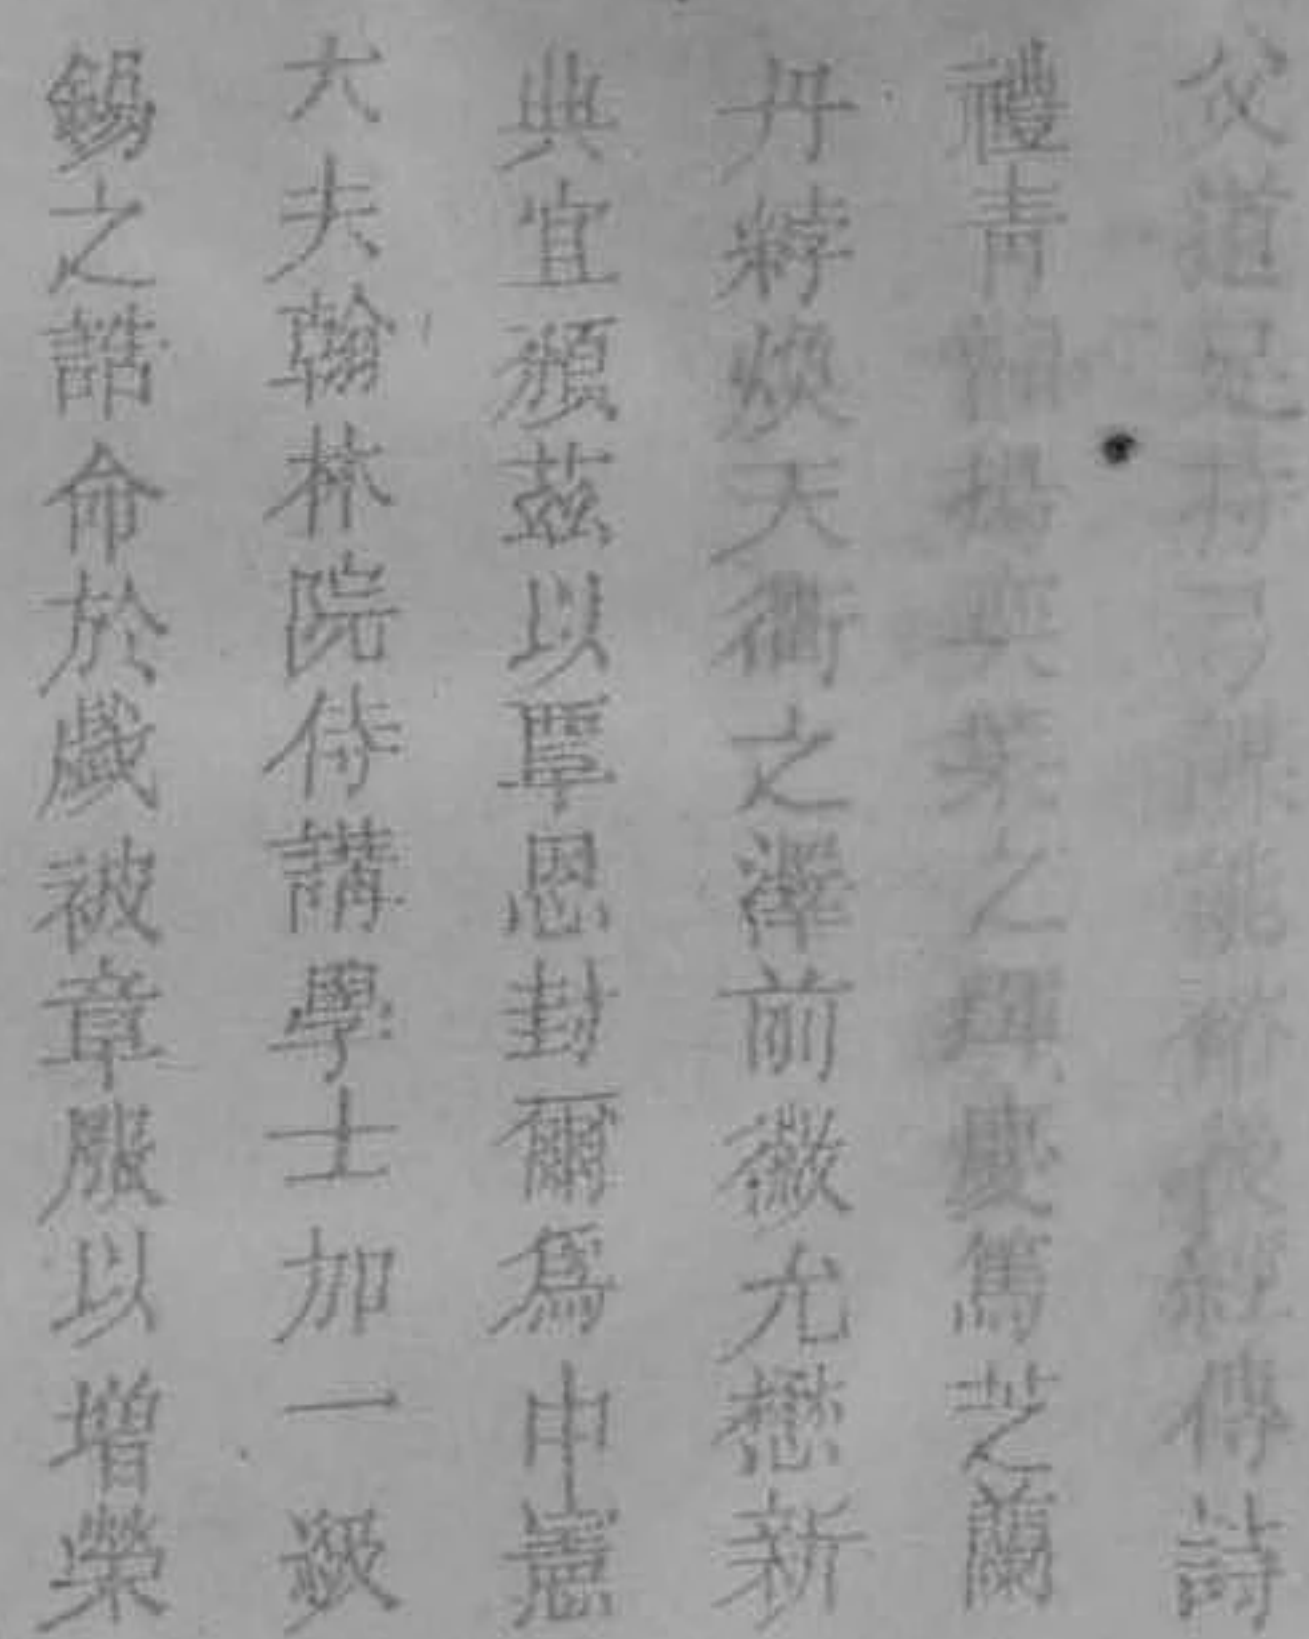 父道足持弓訓誂術教經傳詩
禮青緗揚奕葉之輝慶篤芝蘭
丹綍煥天衢之澤前徽尤懋新
典宜頒茲以覃恩封爾爲中憲
大夫翰林院侍講學士加一級
錫之誥命於戲被章服以增榮